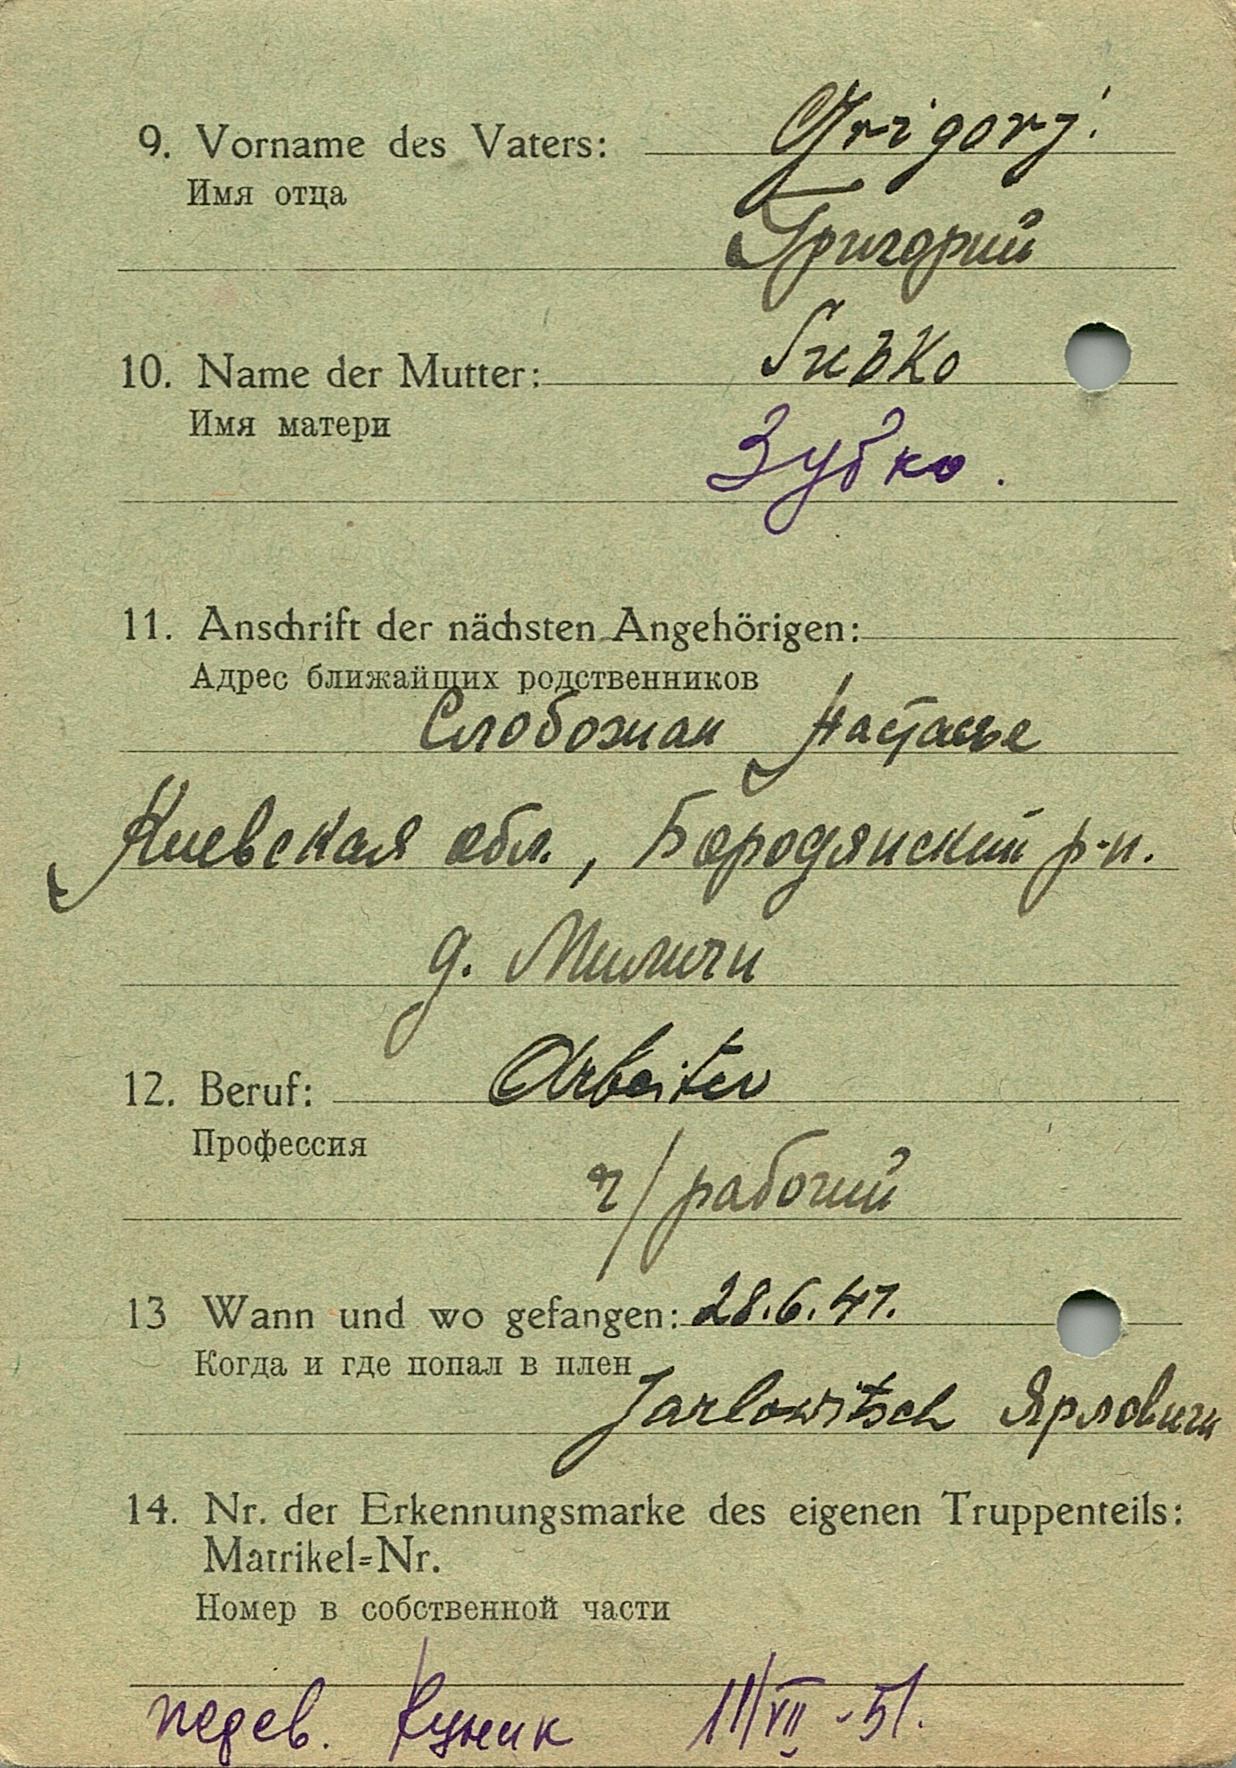 9. Vorname des Vaters: Grigorj
Имя отца
Григорий
10. Name der Mutter: Subko
Имя матери
Зубко.
11. Anschrift der nächsten Angehörigen:
Адрес ближайщих родственников
Слобожан Настасье
Киевская обл., Бородянский р-н.
д. Миличи
12. Beruf: Arbeiter
Профессия
ч/рабочий
13 Wann und wo gefangen: 28.6.41.
Когда и где попал в плен
Jarlowitsch Ярловичи
14. Nr. der Erkennungsmarke des eigenen Truppenteils:
Matrikel=Nr.
Номер в собственной части
перев. 11/VII-51.